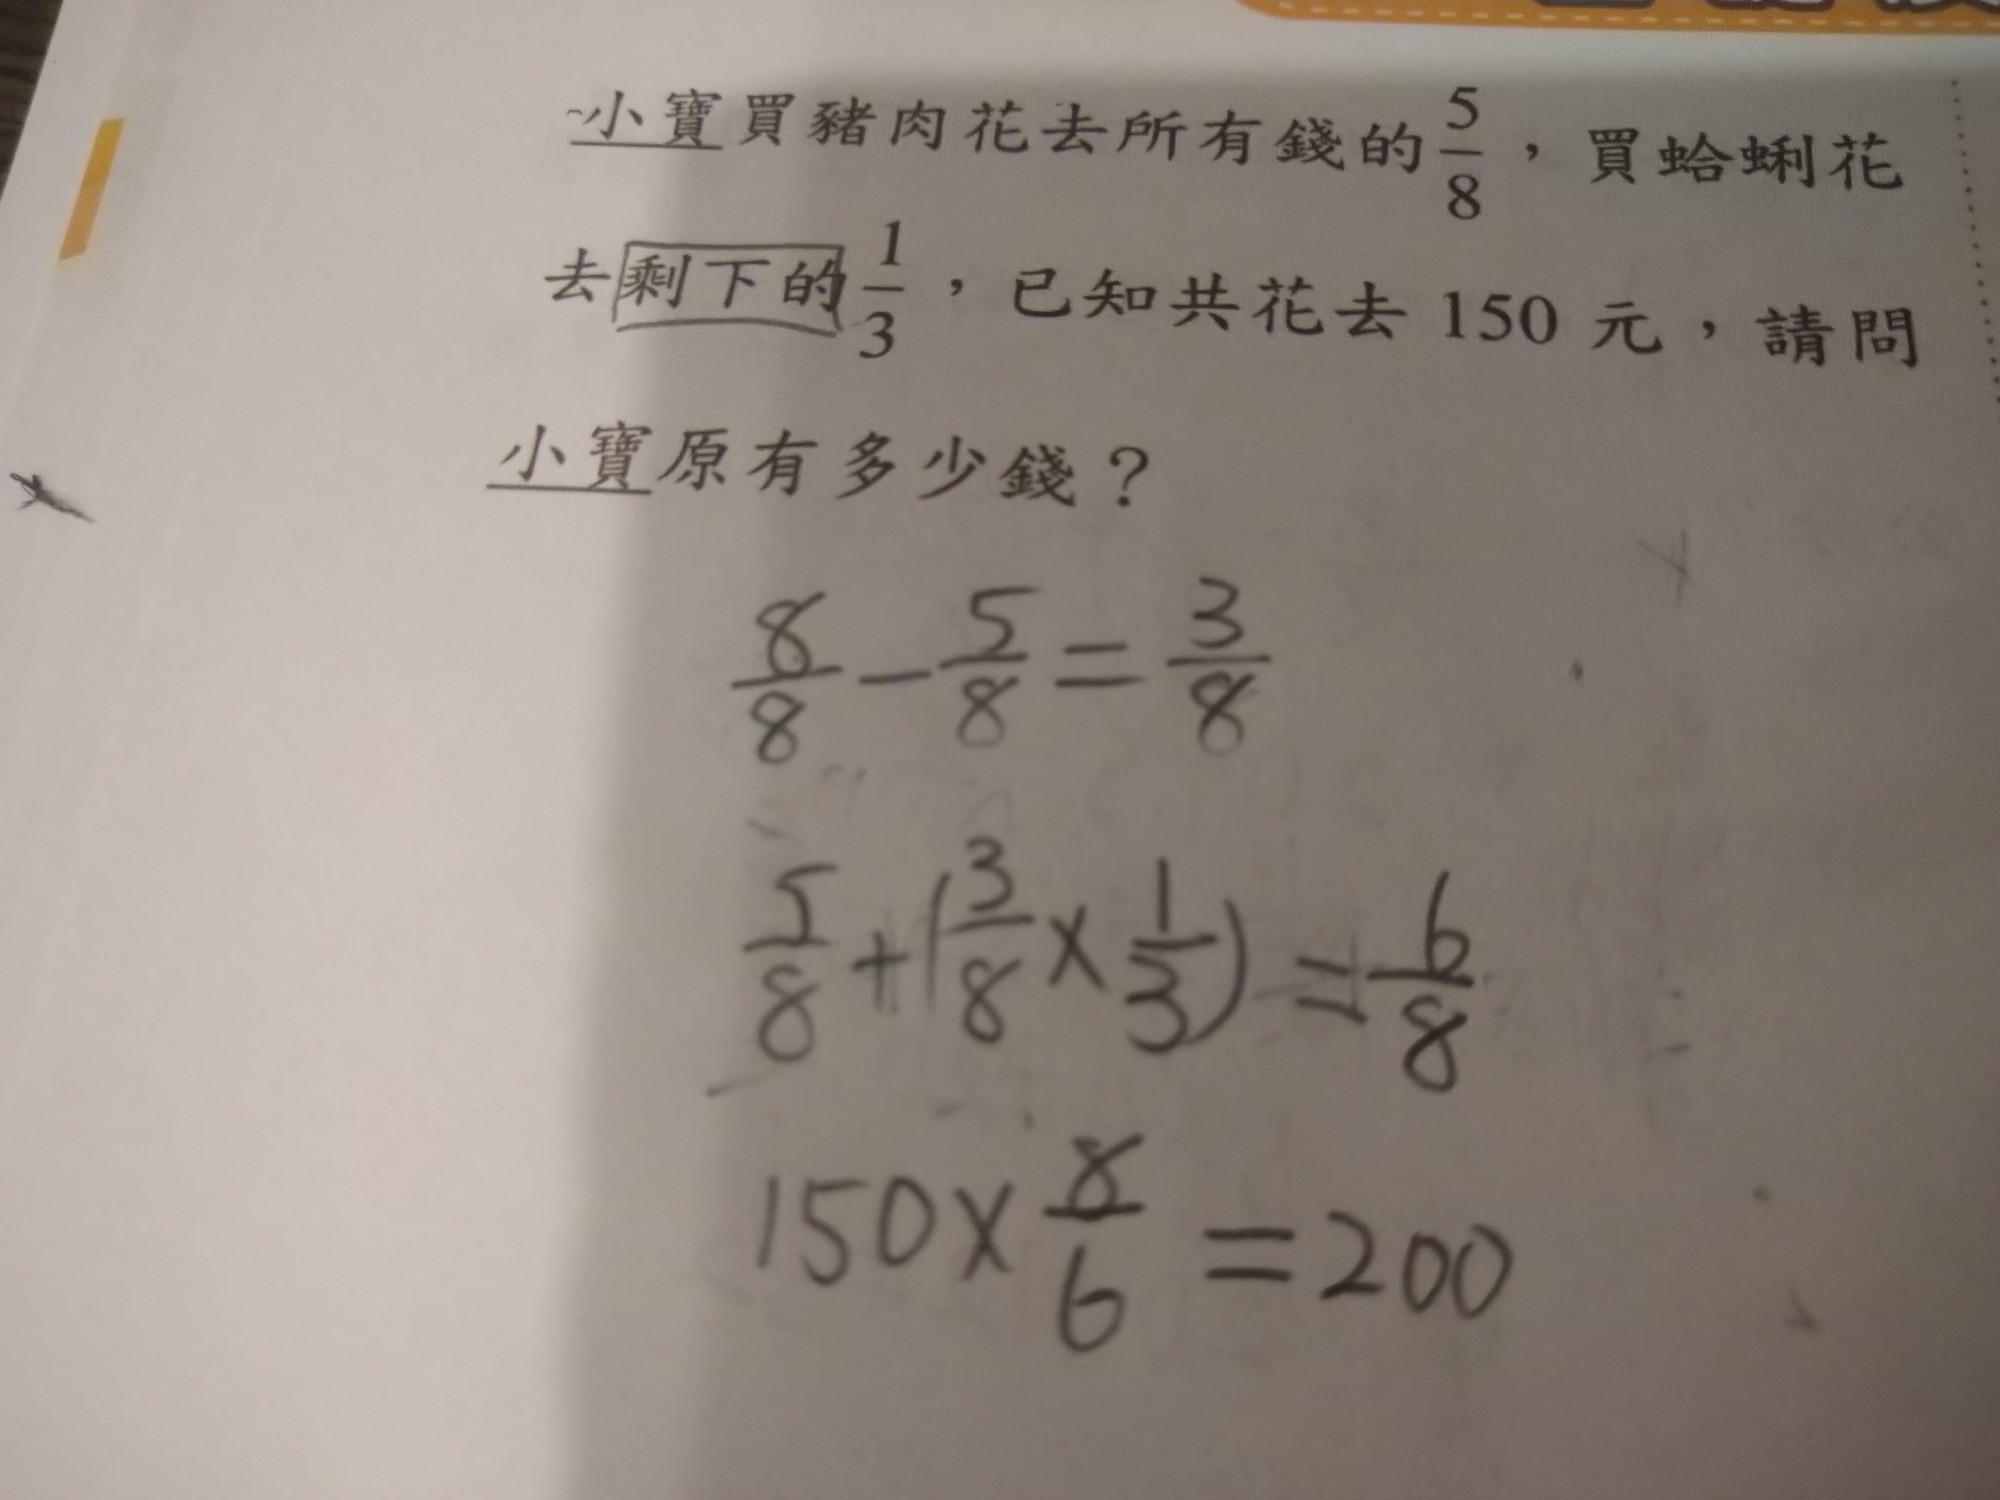 小寶買豬肉花去所有錢的5/8，買蛤蜊花
去剩下的1/3，已知共花去 150 元，請問
小寶原有多少錢？
8/8 - 5/8 = 3/8
5/8 + (3/8 × 1/3) = 6/8
150 × 8/6 = 200